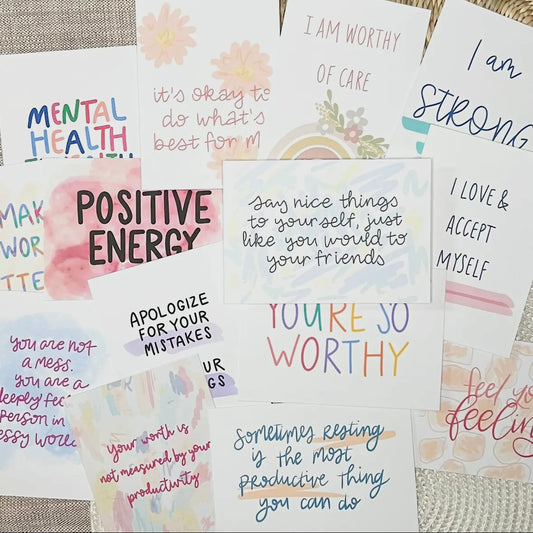 MENTAL
HEALTH
it's okay to
do what's
best for
I AM WORTHY
OF CARE
I am
STRONG
WOR
POSITIVE
ENERGY
say nice things
to yourself, just
like you would to
your friends
I LOVE &
ACCEPT
MYSELF
APOLOGIZE
FOR YOUR
MISTAKES
YOU'RE SO
WORTHY
you are not
a mess.
you are a
deeply
person in
world
feel
your worth is
not measured by your
productivity
sometimes resting
is the most
productive thing
you can do